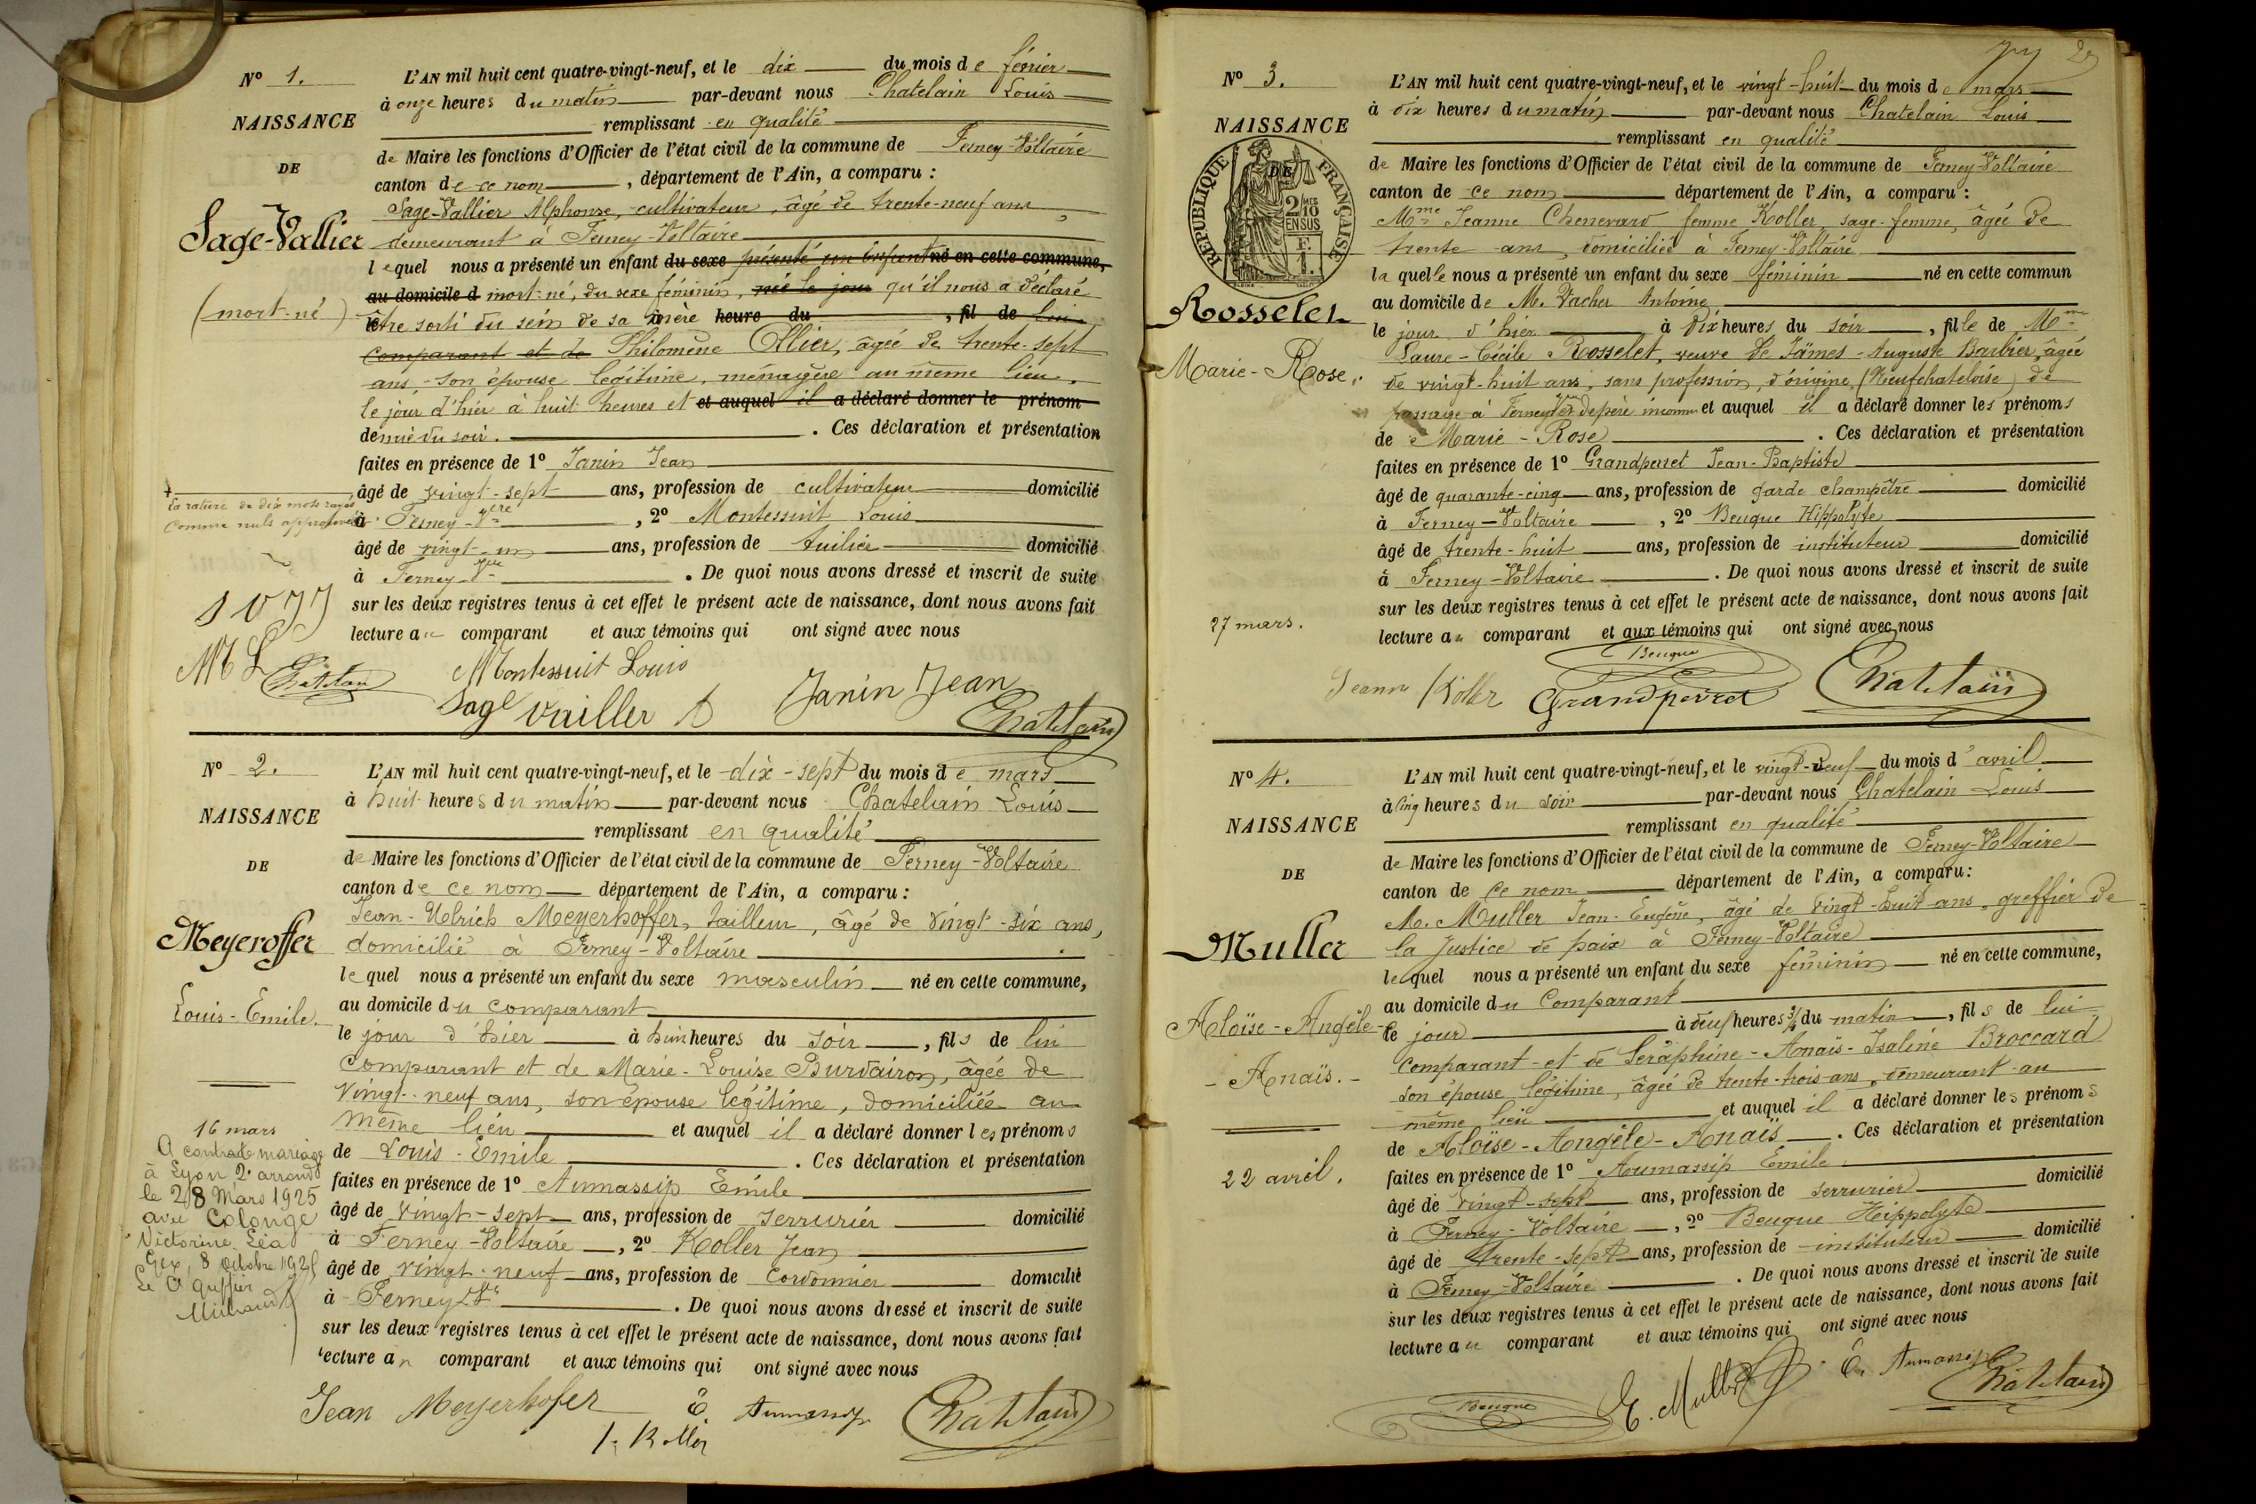 N° 1.
NAISSANCE
DE
Sage-Vallier
(mort-né)
L'AN mil huit cent quatre-vingt-neuf, et le dix du mois de février
à onze heures du matin par-devant nous Chatelain Louis
remplissant en qualité
de Maire les fonctions d'Officier de l'état civil de la commune de Ferney-Voltaire
canton de ce nom, département de l'Ain, a comparu :
Sage-Vallier Alphonse, cultivateur, âgé de trente-neuf ans,
demeurant à Ferney-Voltaire
lequel nous a présenté un enfant du sexe présenté un enfant né en cette commune,
au domicile d mort-né, du sexe féminin, né le jour qu'il nous a déclaré
être sorti du sein de sa mère heure du , fil de lui
comparant et de Philomène Ollier, âgée de trente-sept
ans, son épouse légitime, ménagère au même lieu.
le jour d'hier à huit heures et et auquel il a déclaré donner le prénom
demie du soir. . Ces déclaration et présentation
faites en présence de 1° Janin Jean
âgé de vingt-sept ans, profession de cultivateur domicilié
à Ferney-Vre, 2° Montessuit Louis
âgé de vingt-un ans, profession de tuilier domicilié
à Ferney-Vre. De quoi nous avons dressé et inscrit de suite
sur les deux registres tenus à cet effet le présent acte de naissance, dont nous avons fait
lecture au comparant et aux témoins qui ont signé avec nous
La rature de dix mots rayés
comme nuls approuvée
M L
Chatelain
Montessuit Louis
Sage Vallier A
Janin Jean
Chatelain
N° 2.
NAISSANCE
DE
Meyeroffer
Louis-Emile.
16 mars
A contracté mariage
à Lyon 2e arrond
le 28 Mars 1925
avec Colonge
Victorine Léa
Gex, 8 octobre 192
Le Greffier
L'AN mil huit cent quatre-vingt-neuf, et le dix-sept du mois de mars
à huit heures du matin par-devant nous Chatelain Louis
remplissant en qualité
de Maire les fonctions d'Officier de l'état civil de la commune de Ferney-Voltaire
canton de ce nom département de l'Ain, a comparu :
Jean-Ulrich Meyerhoffer, tailleur, âgé de vingt-six ans,
domicilié à Ferney-Voltaire
lequel nous a présenté un enfant du sexe masculin né en cette commune,
au domicile du comparant
le jour d'hier à huit heures du soir, fils de lui
comparant et de Marie-Louise Burdairon, âgée de
vingt-neuf ans, son épouse légitime, domiciliée au
même lieu et auquel il a déclaré donner les prénoms
de Louis-Emile. Ces déclaration et présentation
faites en présence de 1° Aumassip Emile
âgé de vingt-sept ans, profession de serrurier domicilié
à Ferney-Voltaire, 2° Koller Jean
âgé de vingt-neuf ans, profession de cordonnier domicilié
à Ferney-Vre. De quoi nous avons dressé et inscrit de suite
sur les deux registres tenus à cet effet le présent acte de naissance, dont nous avons fait
lecture au comparant et aux témoins qui ont signé avec nous
Jean Meyerhofer
E Aumassip
J. Koller
Chatelain
N° 3.
NAISSANCE
DE
RÉPUBLIQUE FRANÇAISE
2/10 MES
EN SUS
F.
1.
Rosselet
Marie-Rose.
27 mars.
L'AN mil huit cent quatre-vingt-neuf, et le vingt-huit du mois de mars
à dix heures du matin par-devant nous Chatelain Louis
remplissant en qualité
de Maire les fonctions d'Officier de l'état civil de la commune de Ferney-Voltaire
canton de ce nom département de l'Ain, a comparu :
Mme Jeanne Chenevard femme Koller sage-femme, âgée de
trente ans, domiciliée à Ferney-Voltaire
laquelle nous a présenté un enfant du sexe féminin né en cette commun
au domicile de M. Vacher Antoine
le jour d'hier à dix heures du soir, fille de Mme
Laure-Cécile Rosselet, veuve de James-Auguste Barbier, âgée
de vingt-huit ans, sans profession, d'origine (Neufchateloise) de
passage à Ferney-Vre de père inconnu et auquel il a déclaré donner les prénoms
de Marie-Rose. Ces déclaration et présentation
faites en présence de 1° Grandperret Jean-Baptiste
âgé de quarante-cinq ans, profession de garde champêtre domicilié
à Ferney-Voltaire, 2° Beuque Hippolyte
âgé de trente-huit ans, profession de instituteur domicilié
à Ferney-Voltaire. De quoi nous avons dressé et inscrit de suite
sur les deux registres tenus à cet effet le présent acte de naissance, dont nous avons fait
lecture au comparant et aux témoins qui ont signé avec nous
Beuque
Jeanne Koller
Grandperret
Chatelain
N° 4.
NAISSANCE
DE
Muller
Aloïse-Angèle-
-Anaïs.-
22 avril.
L'AN mil huit cent quatre-vingt-neuf, et le vingt-deux du mois d'avril
à cinq heures du soir par-devant nous Chatelain Louis
remplissant en qualité
de Maire les fonctions d'Officier de l'état civil de la commune de Ferney-Voltaire
canton de ce nom département de l'Ain, a comparu :
M. Muller Jean-Eugène, âgé de vingt-huit ans, greffier de
la Justice de paix à Ferney-Voltaire
lequel nous a présenté un enfant du sexe féminin né en cette commune,
au domicile du comparant
le jour à neuf heures 3/4 du matin, fils de lui
comparant et de Séraphine-Anaïs-Isaline Broccard
son épouse légitime, âgée de trente-trois ans, demeurant au
même lieu et auquel il a déclaré donner les prénoms
de Aloïse-Angèle-Anaïs. Ces déclaration et présentation
faites en présence de 1° Aumassip Emile
âgé de vingt-sept ans, profession de serrurier domicilié
à Ferney-Voltaire, 2° Beuque Hippolyte
âgé de trente-sept ans, profession de instituteur domicilié
à Ferney-Voltaire. De quoi nous avons dressé et inscrit de suite
sur les deux registres tenus à cet effet le présent acte de naissance, dont nous avons fait
lecture au comparant et aux témoins qui ont signé avec nous
Beuque
E. Muller
E. Aumassip
Chatelain